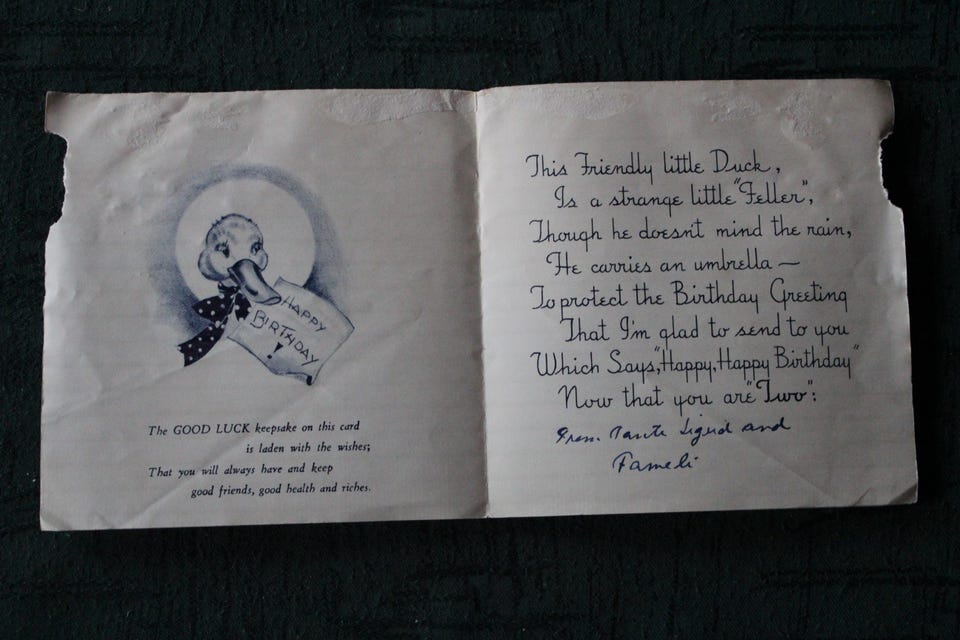 HAPPY
BIRTHDAY
!
The GOOD LUCK keepsake on this card
is laden with the wishes;
That you will always have and keep
good friends, good health and riches.
This Friendly little Duck,
Is a strange little "Feller",
Though he doesn't mind the rain,
He carries an umbrella —
To protect the Birthday Greeting
That I'm glad to send to you
Which Says, "Happy, Happy Birthday"
Now that you are "Two":
From Tante Sigrid and
Fameli